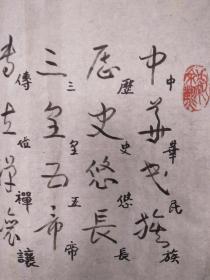 中華民族
中華民族
歷史悠長
歷史悠長
三皇五帝
三皇五帝
傳位禪讓
傳位禪讓